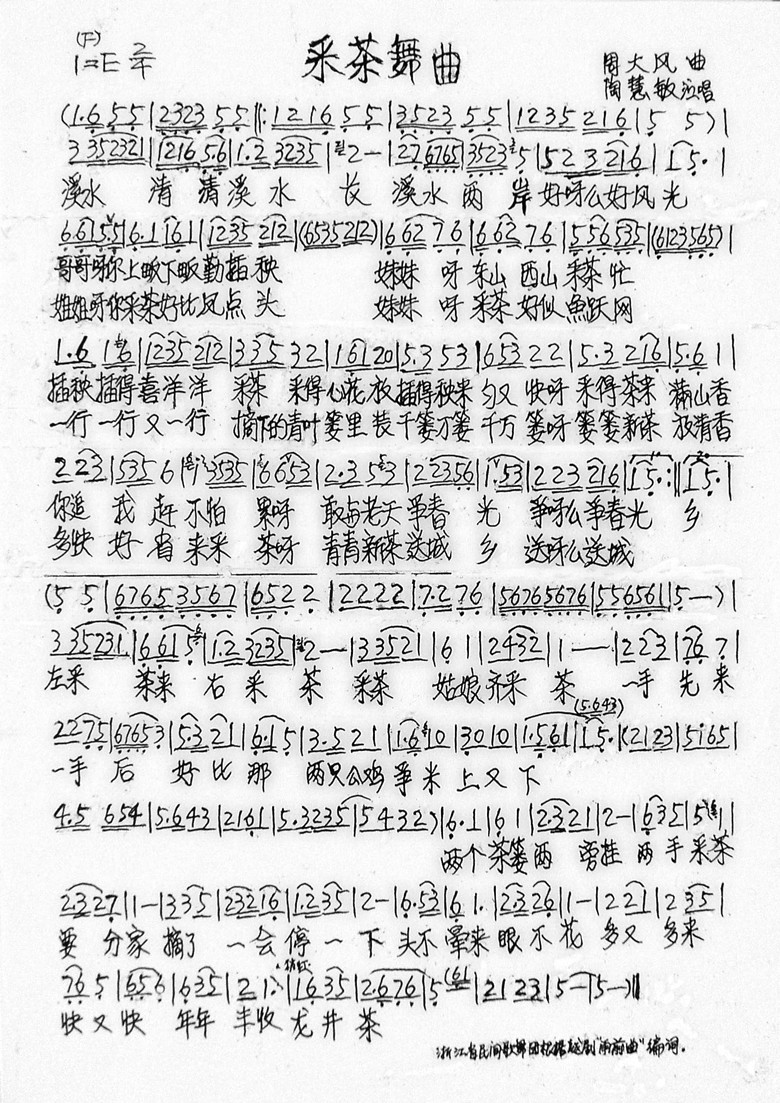 (F)
1=E 2/4
采茶舞曲
周大风 曲
陶慧敏 演唱
(1·6 5 5|2323 5 5|:1216 5 5|3523 5 5|1235 216|5 5)|
3 35232 1|1216 5·6|1·2 3235|2—|27 6765|3523 5|52 3 216|1 5·|
溪水 清 清溪 水 长 溪水 两 岸 好呀么好风 光
6 61 5·5|6·1 161|1235 212|(6535212)|6 62 7 6|6 62 7 6|55 6535|(6123565)|
哥哥呀你上畈下畈勤插 秧 妹妹 呀 东山 西山 采茶 忙
姐姐呀你采茶好比凤点 头 妹妹 呀 采茶 好似 鱼跃网
1·6 1 6|1235 212|335 32|161 20|5·3 53|653 22|5·3 216|5·6 1|
插秧 插得喜洋洋 采茶 采得 心花 放 插得秧来 匀又 快呀 采得 茶来 满山香
一行 一行 又一行 摘下的青叶篓里 装 千篓万篓 千万 篓呀 篓篓新茶 放清香
2 23|535 6|3535|6 653|2·3 53|2 2356|1 53|2 23 216|1 5·:||1 5·|
你追 我 赶 不怕 累呀 敢与老天 争春 光 争呀么争春光 乡
多快 好 省 来采 茶呀 青青新茶 送城 乡 送呀么送城
(5 5|6765 3567|6522|2222|7·2 76|56765676|556561|5—)|
3 35231|6 61 5|1·2 3235|2—|3 3521|6 1|2432|1—|2 23|76 7|
左采 茶来 右 采 茶 采茶 姑娘 齐采 茶 一手 先 来
(5·643)
2275|6765 3|5·3 21|6·1 5|3·5 21|1·6 10|3010|1·561|1 5·|(2123|5 65|
一手 后 好 比 那 两只公鸡 争 米 上 又 下
4·5 654|5·643|2161|5·3235|5432)|6·1|6 1|2321|2—|6 35|5 1|
两个 茶篓 两 旁挂 两 手 采茶
2327|1—|335|23216|1·235|2—|6·53|6 1·|2·326|1—|2 21|2 35|
要 分家 摘了 一会 停 一 下 头不 晕来 眼 不 花 多又 多来
76 5|656|6 35|2 1·|16 35|2·676|5 (61|21 23|5—|5—)||
快 又快 年年 丰收 龙 井 茶
浙江省民间歌舞团根据越剧"雨前曲"编词.